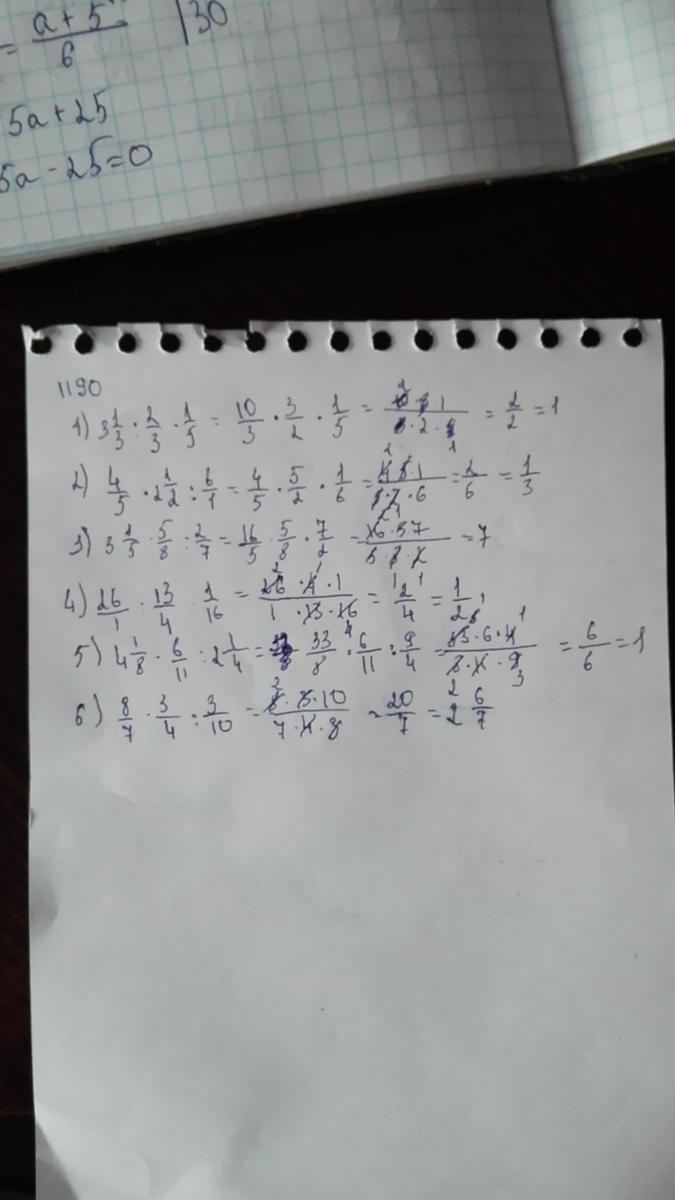 = (a+5)/6 |30
5a+25
5a-25=0
1190
1) 3 1/3 : 2/3 · 1/5 = 10/3 · 3/2 · 1/5 = = 2/2 = 1
2) 4/5 · 2 1/2 : 6/1 = 4/5 · 5/2 · 1/6 = = 2/6 = 1/3
3) 3 1/5 · 5/8 : 2/7 = 16/5 · 5/8 · 7/2 = (16·5·7)/(5·8·2) = 7
4) 26/1 : 13/4 · 1/16 = (26·4·1)/(1·13·16) = 2/4 = 1/2
5) 4 1/8 · 6/11 : 2 1/4 = 33/8 · 6/11 : 9/4 = (33·6·4)/(8·11·9) = 6/6 = 1
6) 8/7 · 3/4 : 3/10 = (8·3·10)/(7·4·3) = 20/7 = 2 6/7